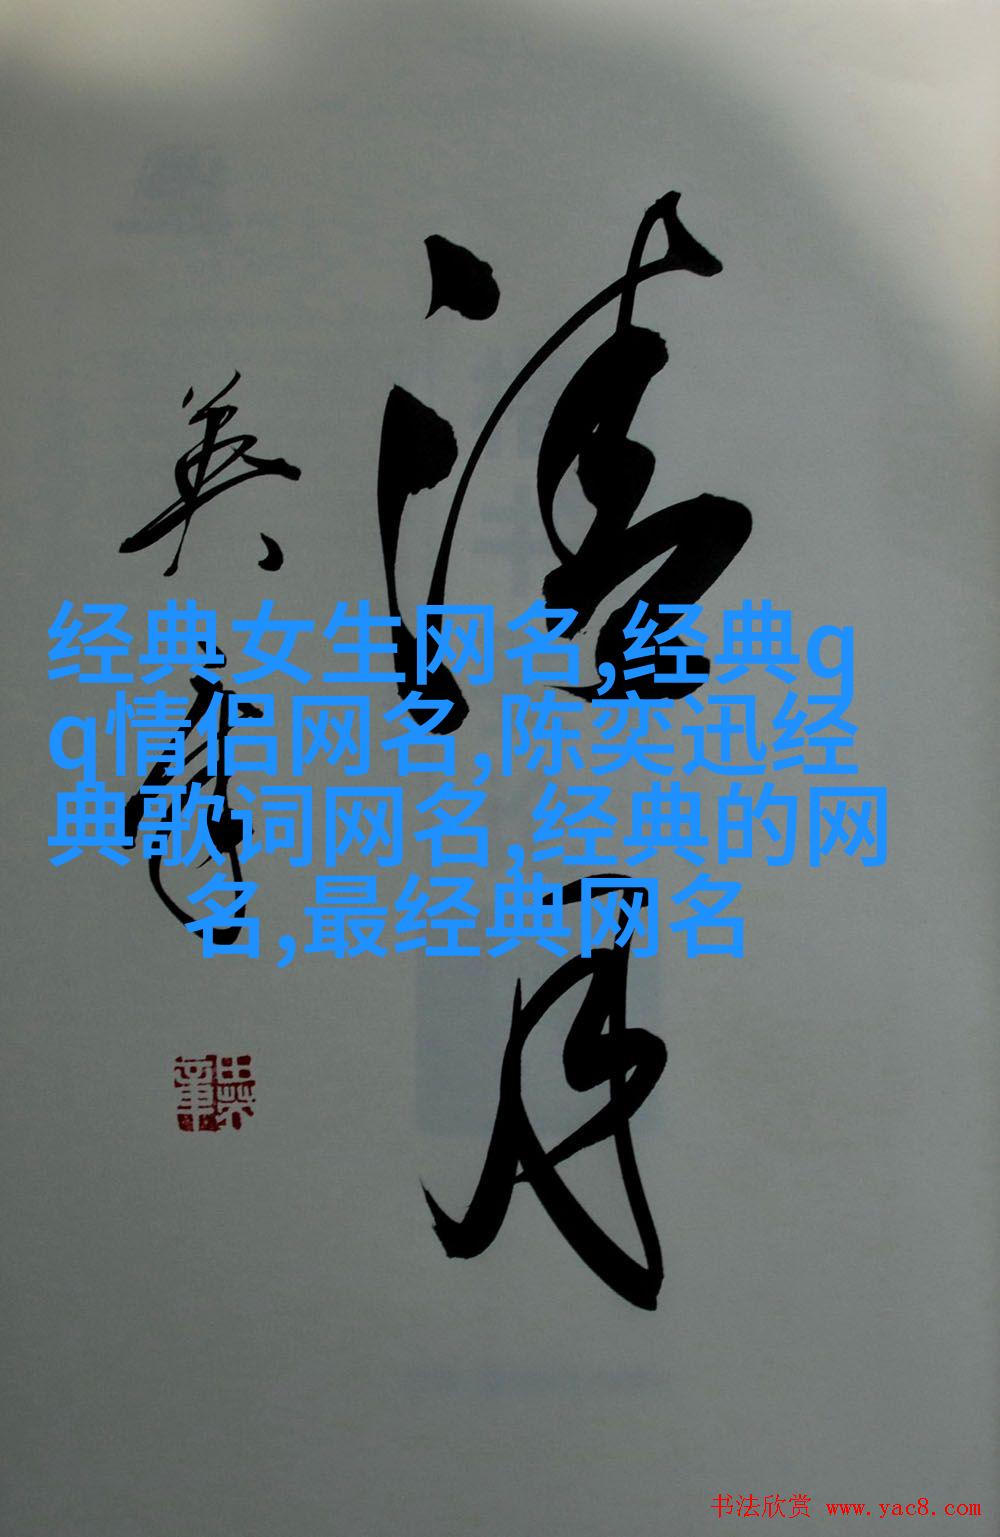 清月
英章
田英章
经典女生网名,经典q
q情侣网名,陈奕迅经
典歌词网名,经典的网
名,最经典网名
书法欣赏 www.yac8.com